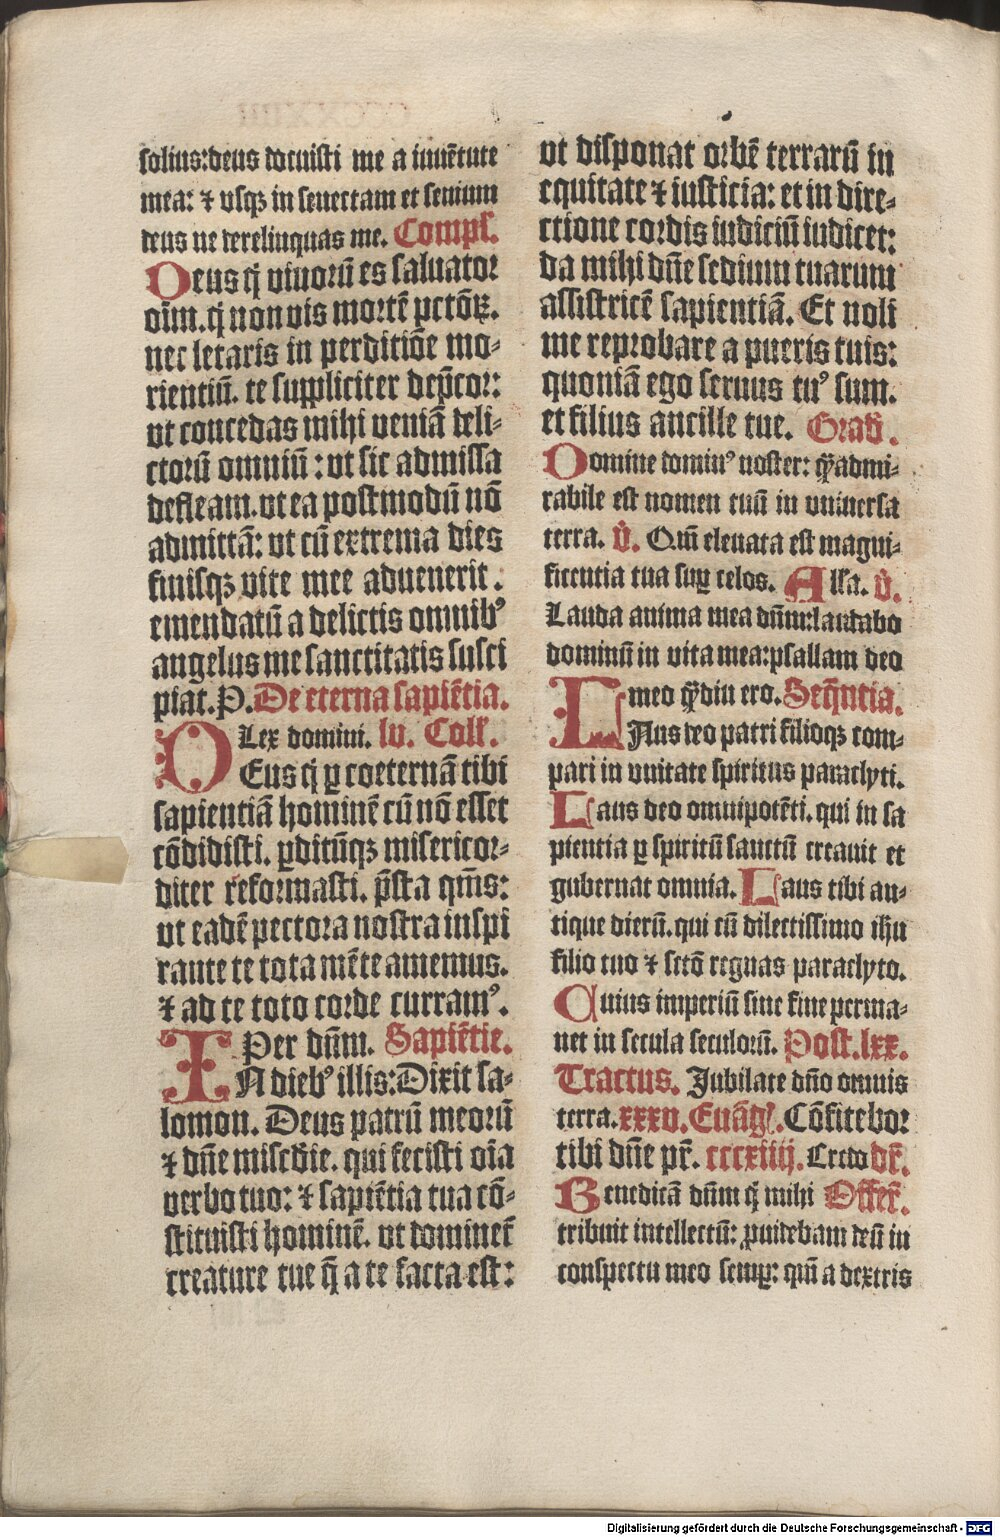 solius:deus docuisti me a iuuētute
mea: ⁊ vsqꝫ in senectam et senium
deus ne derelinquas me. Compl̕.
Deus q̄ viuorū es saluator
oīm.q̄ non vis mortē pctōꝝ.
nec letaris in perditiōe mo-
rientiū. te suppliciter dep̄cor:
vt concedas mihi veniā deli-
ctorū omniū: vt sic admissa
defleam.vt ea postmodū nō
admittā: vt cū extrema dies
finisqꝫ vite mee aduenerit.
emendatū a delictis omnibꝰ
angelus me sanctitatis susci
piat. P. De eterna sapiētia.
Lex domini. lv. Coll̕.
DEus q̄ ꝑ coeternā tibi
sapientiā hominē cū nō esset
cōdidisti. ꝑditūqꝫ misericor-
diter reformasti. p̄sta qm̄s:
vt eadē pectora nostra inspi
rante te tota mēte amemus.
⁊ ad te toto corde curramꝰ.
Per dn̄m. Sapiētie.
IN diebꝰ illis:Dixit sa-
lomon. Deus patrū meorū
⁊ dn̄e mis̄cdie. qui fecisti oīa
verbo tuo: ⁊ sapiētia tua cō-
stituisti hominē. vt dominet̄
creature tue q̄ a te facta est:
vt disponat orbē terrarū in
equitate ⁊ iusticia: et in dire-
ctione cordis iudiciū iudicet:
da mihi dn̄e sedium tuarum
assistricē sapientiā. Et noli
me reprobare a pueris tuis:
quoniā ego seruus tuꝰ sum.
et filius ancille tue. Grad̄.
Domine dominꝰ noster: qͣ̄admi-
rabile est nomen tuū in vniuersa
terra. v̄. Qm̄ eleuata est magni-
ficentia tua suꝑ celos. All̕a. v̄.
Lauda anima mea dn̄m:laudabo
dominū in vita mea:psallam deo
meo qͣ̄diu ero. Seq̄ntia.
LAus deo patri filioqꝫ com-
pari in vnitate spiritus paraclyti.
Laus deo omnipotēti. qui in sa
pientia ꝑ spiritū sanctū creauit et
gubernat omnia. Laus tibi an-
tique dierū.qui cū dilectissimo ihū
filio tuo ⁊ sctō regnas paraclyto.
Cuius imperiū sine fine perma-
net in secula seculorū. Post.lxx.
Tractus. Jubilate dn̄o omnis
terra.xxxv. Euāg̕. Cōfitebor
tibi dn̄e pr̄. cccxiiij. Credo dr̄.
Benedicā dn̄m q̄ mihi Offer̄.
tribuit intellectū: ꝓuidebam deū in
conspectu meo semꝑ: qm̄ a dextris
Digitalisierung gefördert durch die Deutsche Forschungsgemeinschaft - DFG